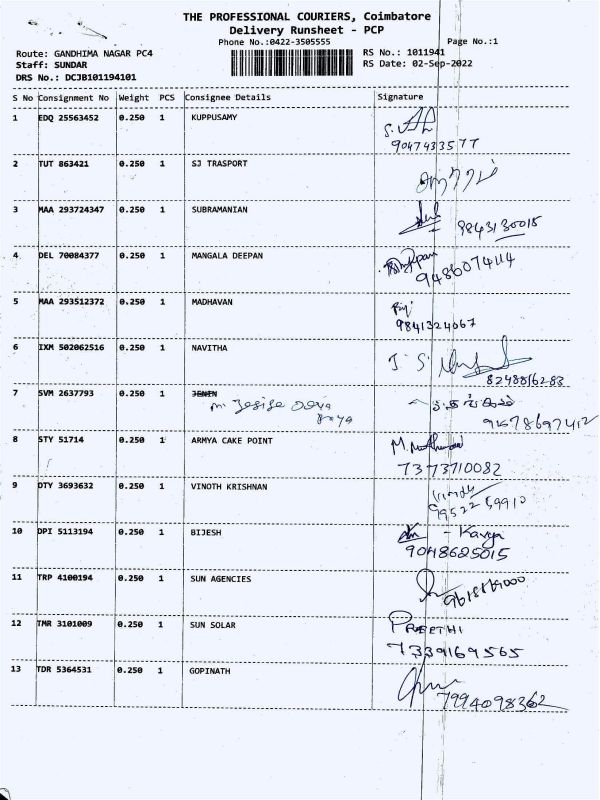 THE PROFESSIONAL COURIERS, Coimbatore
Delivery Runsheet - PCP
Phone No.:0422-3505555 Page No.:1
Route: GANDHIMA NAGAR PC4 RS No.: 1011941
Staff: SUNDAR RS Date: 02-Sep-2022
DRS No.: DCJB101194101
S No Consignment No Weight PCS Consignee Details Signature
1 EDQ 25563452 0.250 1 KUPPUSAMY
9047433577
2 TUT 863421 0.250 1 SJ TRASPORT
3 MAA 293724347 0.250 1 SUBRAMANIAN
9843130015
4 DEL 70084377 0.250 1 MANGALA DEEPAN
9486074114
5 MAA 293512372 0.250 1 MADHAVAN
9841324067
6 IXM 502062516 0.250 1 NAVITHA
J. S.
8248816283
7 SVM 2637793 0.250 1 JENEN
8 STY 51714 0.250 1 ARMYA CAKE POINT
7373710082
9 DTY 3693632 0.250 1 VINOTH KRISHNAN
Vinoth
9952259910
10 DPI 5113194 0.250 1 BIJESH
- Kavya
9048625015
11 TRP 4100194 0.250 1 SUN AGENCIES
12 TMR 3101009 0.250 1 SUN SOLAR
PREETHI
7339169565
13 TDR 5364531 0.250 1 GOPINATH
7994098362